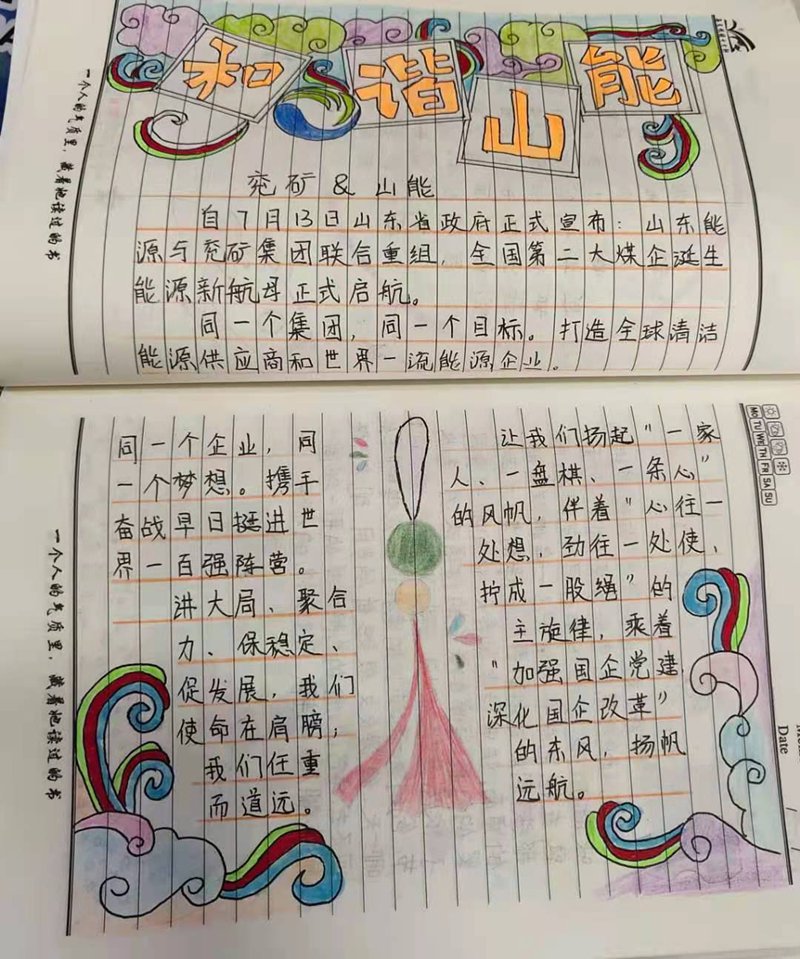 和谐山能
兖矿 & 山能
自7月13日山东省政府正式宣布：山东能
源与兖矿集团联合重组，全国第二大煤企诞生
能源新航母正式启航。
同一个集团，同一个目标。打造全球清洁
能源供应商和世界一流能源企业。
一个人的气质里，藏着他读过的书
同一个企业，同
一个梦想。携手
奋战早日挺进世
界一百强阵营。
讲大局、聚合
力、保稳定、
促发展，我们
使命在肩膀，
我们任重
而道远。
让我们扬起“一家
人、一盘棋、一条心”
的风帆，伴着“心往一
处想，劲往一处使，
拧成一股绳”的
主旋律，乘着
“加强国企党建，
深化国企改革”
的东风，扬帆
远航。
一个人的气质里，藏着他读过的书
MO TU WE TH FR SA SU
Date